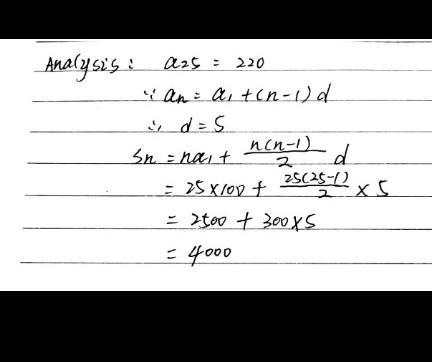 Analysis: a25 = 220
∵ an = a1 + (n-1)d
∴ d = 5
Sn = na1 + n(n-1)/2 d
= 25×100 + 25(25-1)/2 × 5
= 2500 + 300×5
= 4000